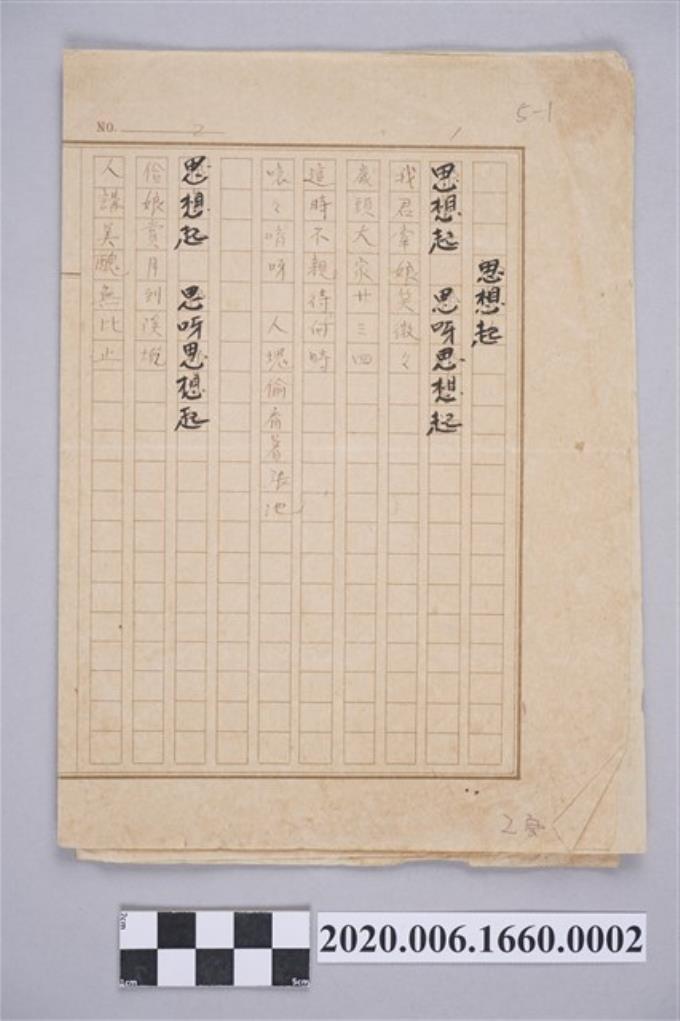 5-1
NO. 2
1
思想起
思想起 思呀思想起
我君牽娘笑微々
歲頭大家廿三四
這時不親待何時
噯々唷呀 人塊偷看著張池
思想起 思呀思想起
俗娘賣月到溪墘
人講美醜無比止
2頁
7cm
5cm
2020.006.1660.0002